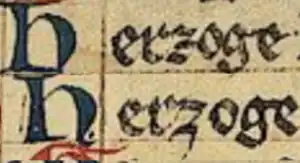 herzoge
herzoge